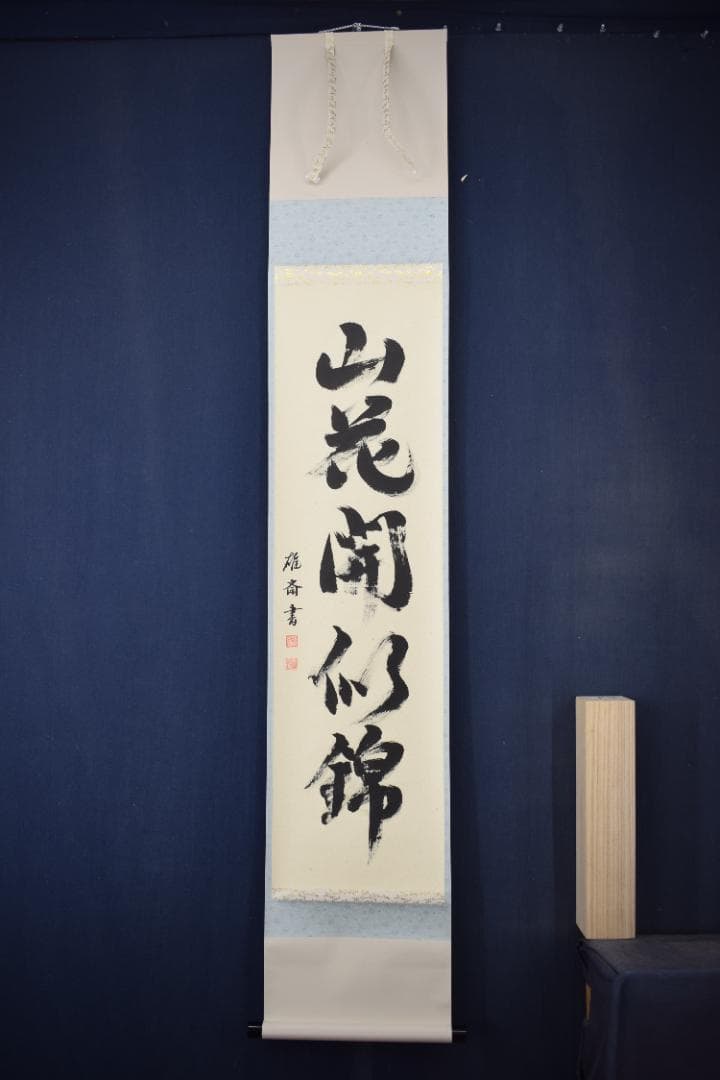 山花開似錦
雄斎書